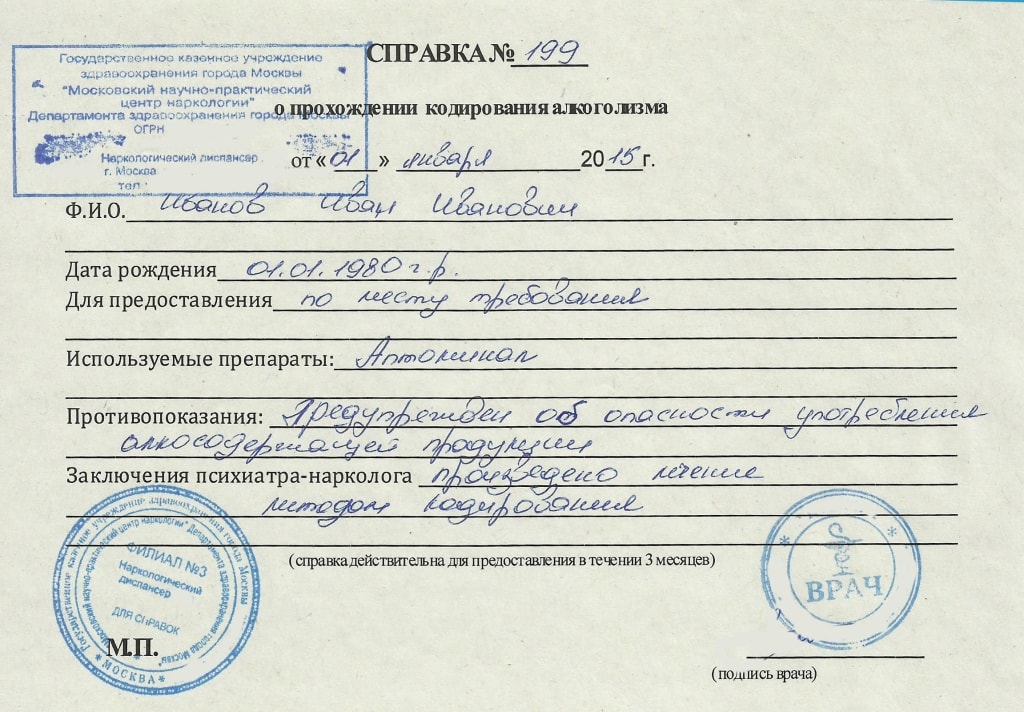 СПРАВКА № 199
Государственное казенное учреждение
здравоохранения города Москвы
"Московский научно-практический
центр наркологии"
Департамента здравоохранения города Москвы
ОГРН
Наркологический диспансер
г. Москва
тел.:
о прохождении кодирования алкоголизма
от « 01 » января 2015 г.
Ф.И.О. Иванов Иван Иванович
Дата рождения 01.01.1980 г.р.
Для предоставления по месту требования
Используемые препараты:
Противопоказания: Предупрежден об опасности употребления
алкосодержащей продукции
Заключения психиатра-нарколога произведено лечение
методом кодирования
(справка действительна для предоставления в течении 3 месяцев)
Государственное казенное учреждение здравоохранения города Москвы
"Московский научно-практический центр наркологии" Департамента здравоохранения города Москвы"
ФИЛИАЛ №3
Наркологический
диспансер
ДЛЯ СПРАВОК
* МОСКВА *
ВРАЧ
М.П.
(подпись врача)